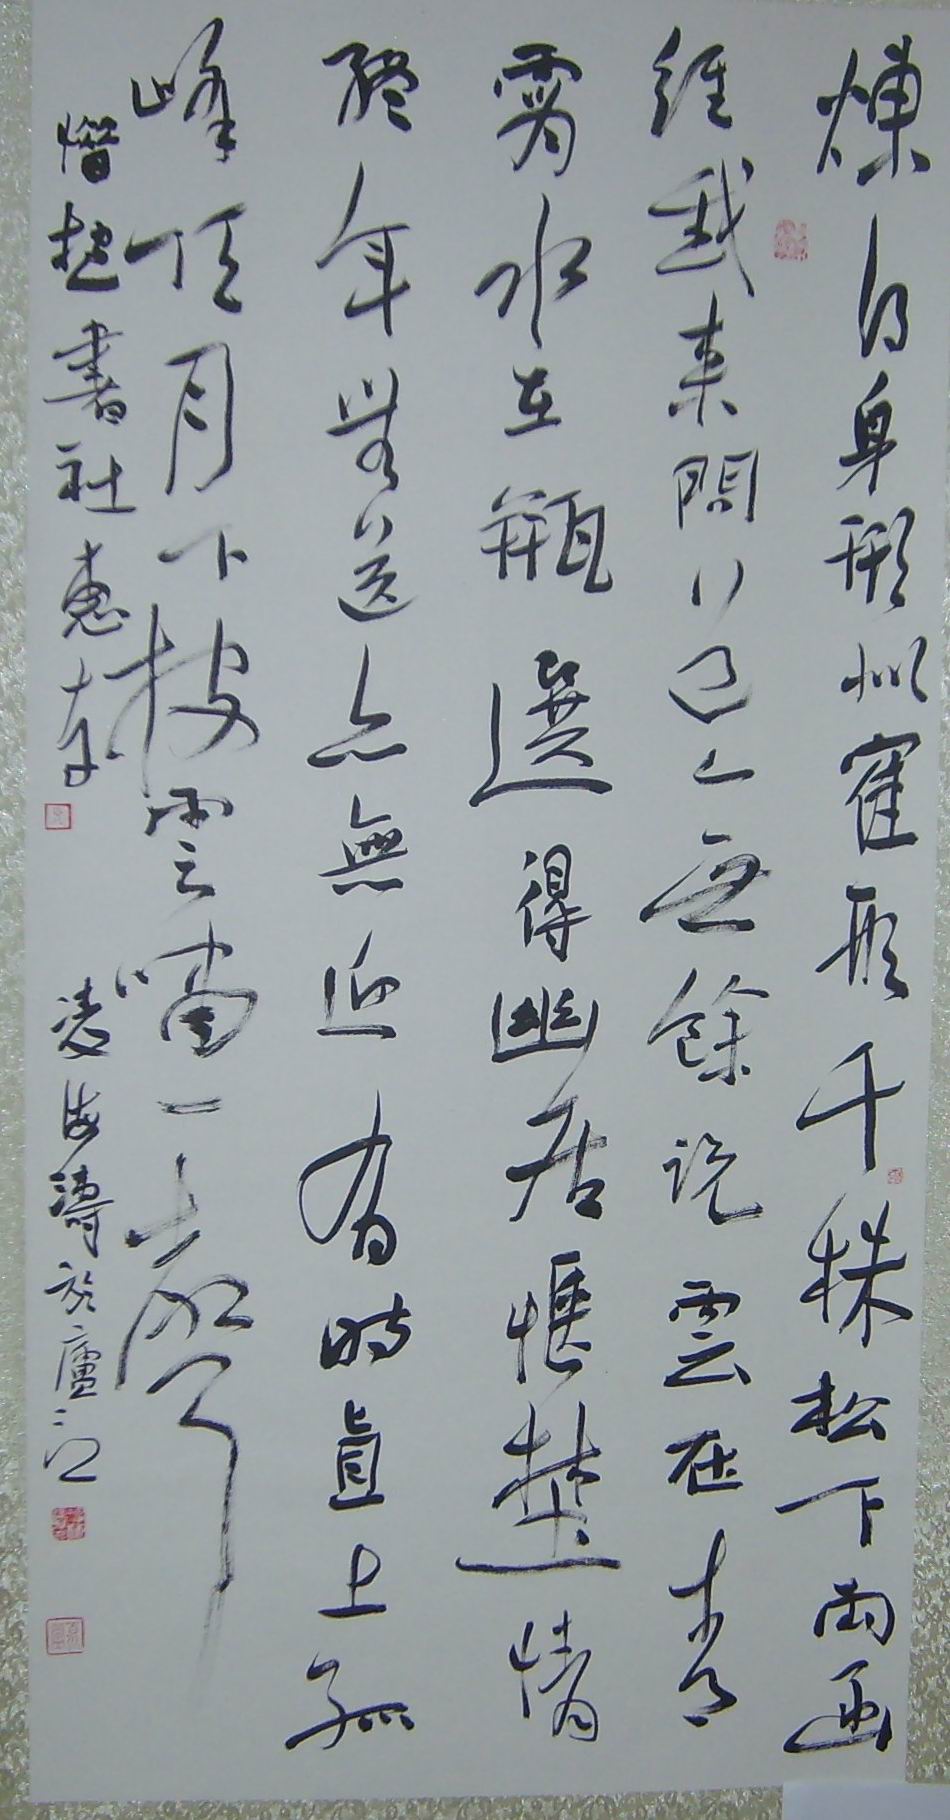 煉得身形似隺形千株松下兩函
經我來問道無餘說雲在青
霄水在瓶選得幽居愜埜情
終年無送亦無迎有時直上孤
峰頂月下披雲嘯一聲
書社惠存 凌海濤於廬江